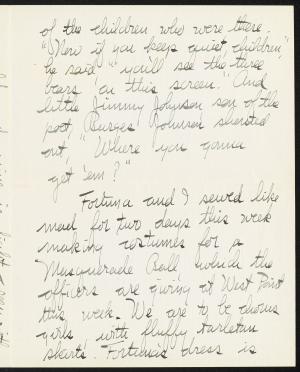 of the children who were there.
"Now if you keep quiet, children,"
he said, "you'll see the three
bears on this screen." And
little Jimmy Johnson son of the
poet, "Burges Johnson shouted
out, "Where you gonna
get 'em?"
Fortuna and I sewed like
mad for two days this week
making costumes for a
Masquerade Ball, which the
officers are giving at West Point
this week. We are to be chorus
girls, with fluffy tarletan
skirts. Fortuna's dress is